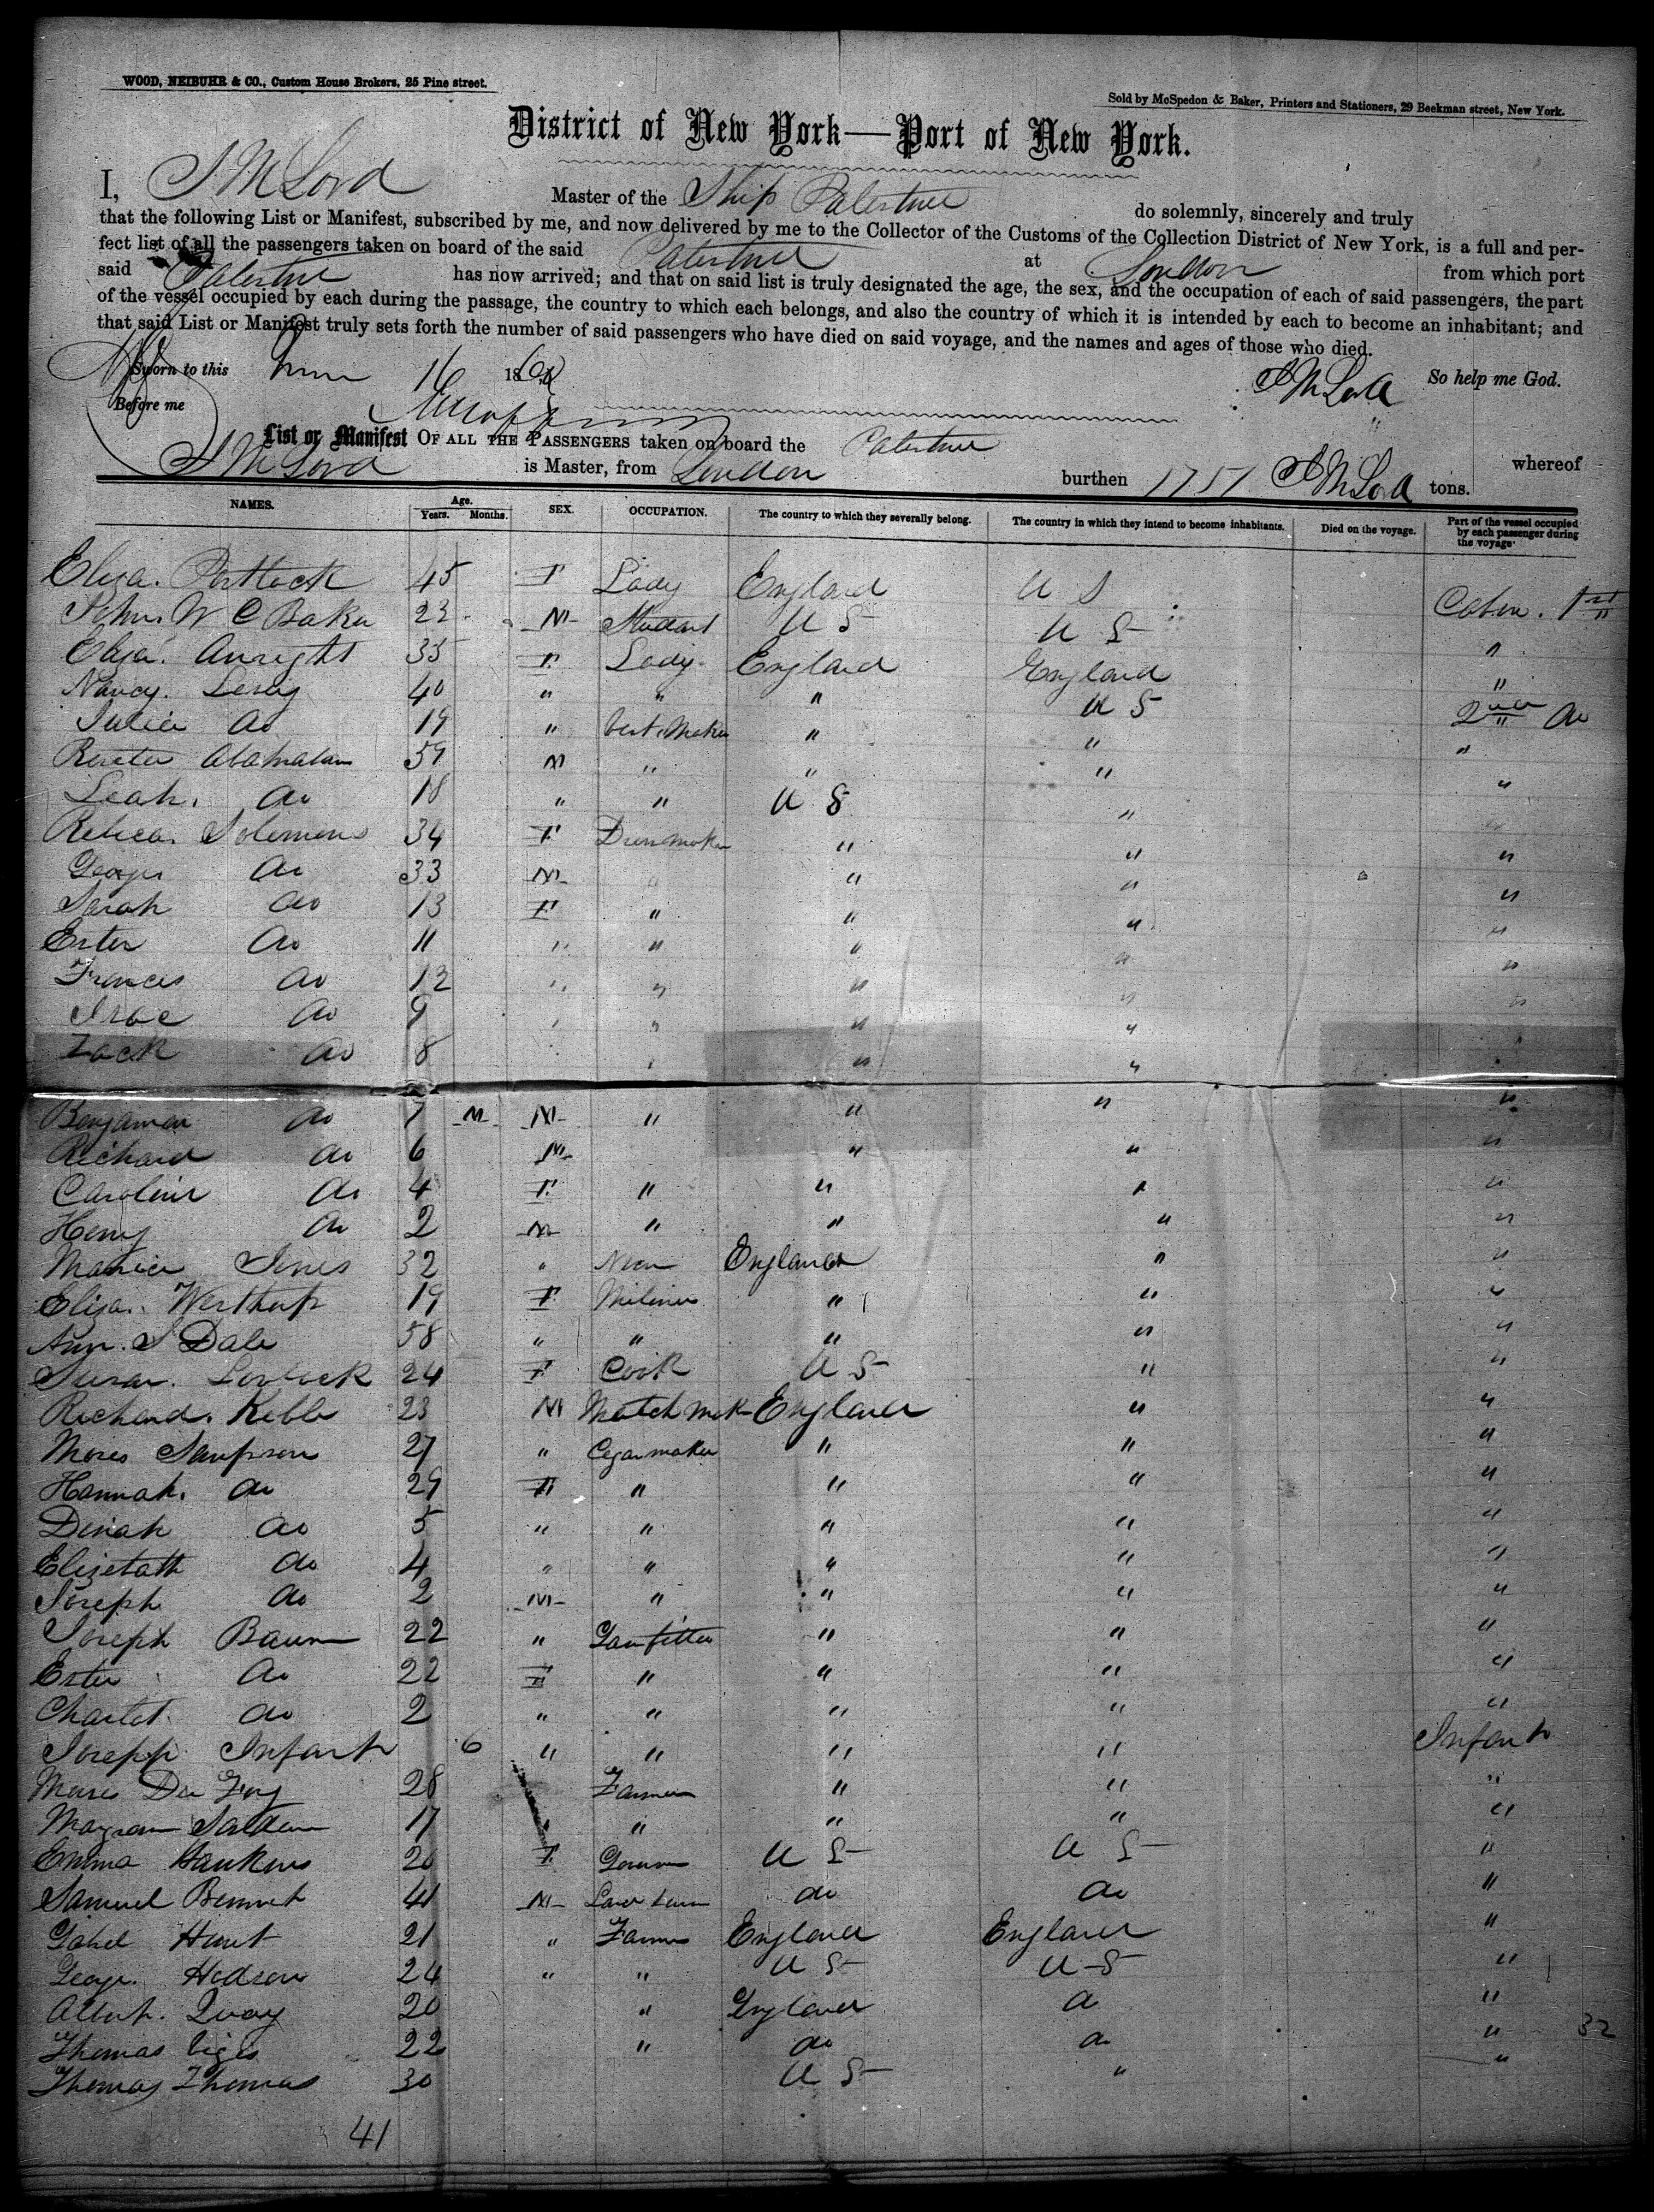 WOOD, NEIBUHR & CO., Custom House Brokers, 25 Pine street.
Sold by McSpedon & Baker, Printers and Stationers, 29 Beekman street, New York.
District of New York—Port of New York.
I, J M Lord Master of the Ship Palestine do solemnly, sincerely and truly
that the following List or Manifest, subscribed by me, and now delivered by me to the Collector of the Customs of the Collection District of New York, is a full and per-
fect list of all the passengers taken on board of the said Palestine at London from which port
said Palestine has now arrived; and that on said list is truly designated the age, the sex, and the occupation of each of said passengers, the part
of the vessel occupied by each during the passage, the country to which each belongs, and also the country of which it is intended by each to become an inhabitant; and
that said List or Manifest truly sets forth the number of said passengers who have died on said voyage, and the names and ages of those who died.
Sworn to this 16 18 So help me God.
Before me J M Lord
List or Manifest OF ALL THE PASSENGERS taken on board the Palestine whereof
J M Lord is Master, from London burthen 1751 J M Lord tons.
NAMES. Age. Years. Months. SEX. OCCUPATION. The country to which they severally belong. The country in which they intend to become inhabitants. Died on the voyage. Part of the vessel occupied by each passenger during the voyage
Eliza. Portlock 45 F Lady England U S Cabin. 1st
John. W C Baker 23 M Student U S U S "
Eliza. Anright 35 F Lady England England "
Nancy. Lesley 40 " " " U S "
Julia do 19 " Vest. Maker " " 2nd do
59 M " " " "
Leah. do 18 " " U S " "
Rebeca. Solemons 34 F Dressmaker " "
George do 33 M " " "
Sarah do 13 F " " " "
Ester do 11 " " " " "
Frances do 12 " " " " "
Isac do 9 " " " "
Zack do 8 " "
Benjaman do 7 M M " " " "
Richard do 6 M " " "
Caroline do 4 F " " " "
Henry do 2 M " " " "
Maria Jones 32 " None England " "
Eliza. Westhup 19 F Miliner " " "
Ann. S Dale 58 " " " " "
Susan. Lovlock 24 F Cook U S " "
Richard. Keble 23 M Match mak England " "
Moses Sampson 27 " Cegar maker " " "
Hannah. do 29 F " " " "
Dinah do 5 " " " " "
Elizetath do 4 " " " " "
Joseph do 2 M " " " "
Joseph Baum 22 " Gasfitter " " "
Ester do 22 F " " " "
Charlot. do 2 " " " " "
Joseph Infant 6 " " " " Infant
28 Farmer " " "
17 " " " " "
Emma Hawkins 20 F U S U S "
Samuel Bennet 41 M do do "
Hunt 21 " Farmer England England "
George. Hodson 24 " " U S U S "
Albert. Quay 20 " England "
Thomas 22 " do " 32
Thomas Thomas 30 U S " "
41